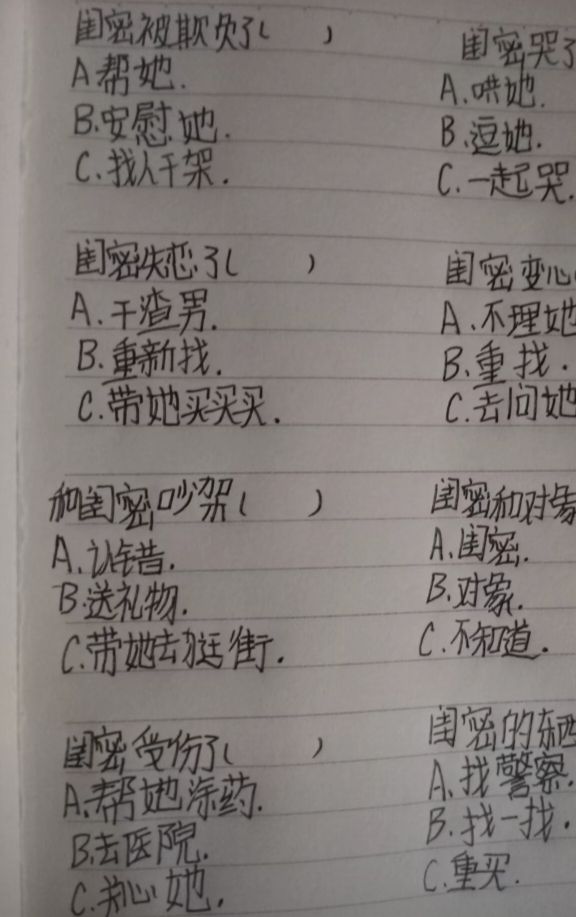 闺密被欺负了(    )
A.帮她.
B.安慰她.
C.找人干架.
闺密失恋了(    )
A.干渣男.
B.重新找.
C.带她买买买.
和闺密吵架(    )
A.认错.
B.送礼物.
C.带她去逛街.
闺密受伤了(    )
A.帮她涂药.
B.去医院.
C.关心她.
闺密哭了
A.哄她.
B.逗她.
C.一起哭.
闺密变心(
A.不理她
B.重找.
C.去问她
闺密和对象
A.闺密.
B.对象.
C.不知道.
闺密的东西
A.找警察.
B.找一找.
C.重买.